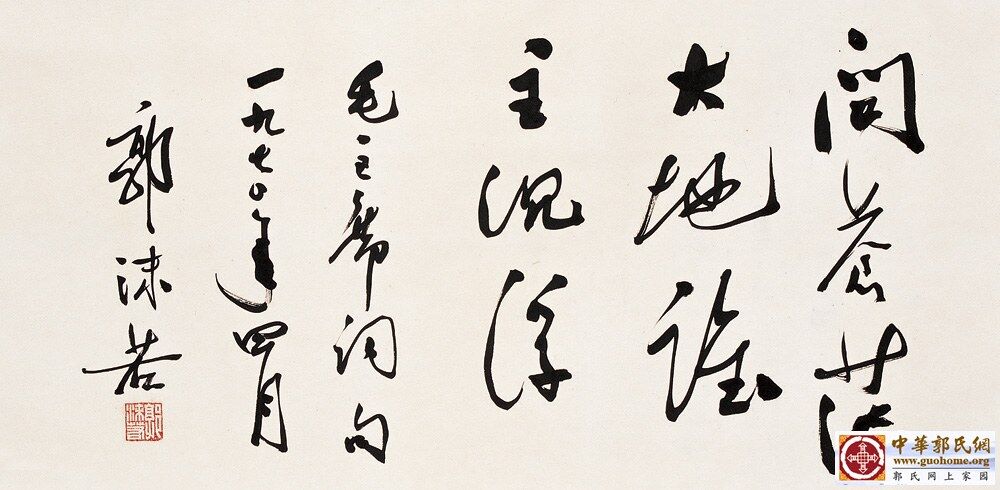 问苍茫
大地谁
主沉浮
毛主席词句
一九七〇年四月
郭沫若
郭沫若
中華郭氏網
www.guohome.org
郭氏网上家园